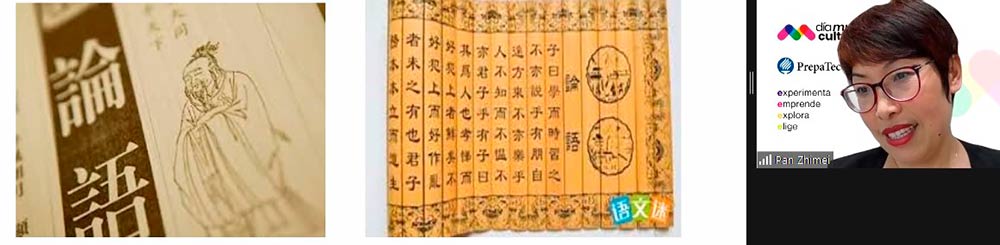 論語
論語
子曰學而時習之
不亦說乎有朋自
遠方來不亦樂乎
人不知而不慍不
亦君子乎有子曰
其爲人也孝悌而
好犯上者鮮矣不
好犯上而好作亂
者未之有也君子
務本本立而道生
语文迷
día mu
cult
PrepaTec
experimenta
emprende
explora
elige
Pan Zhimei